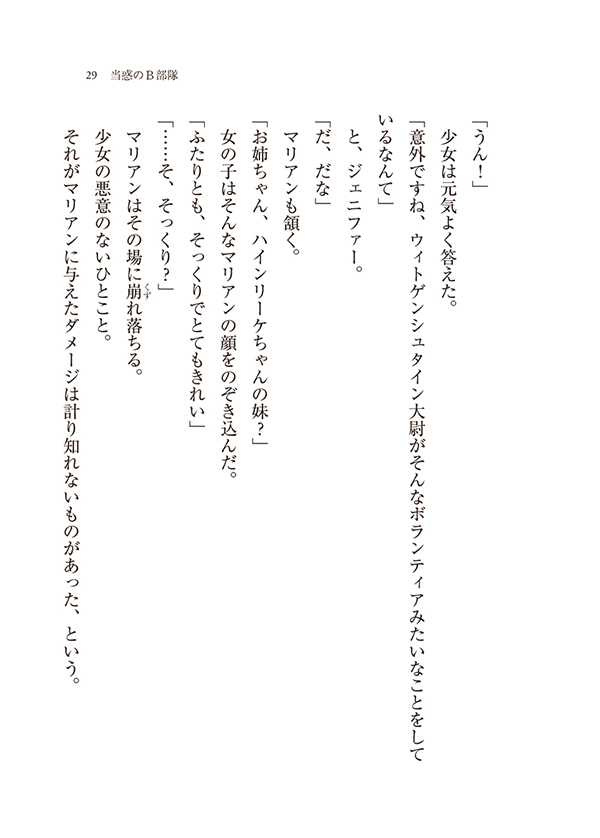 29　当惑のB部隊
「うん！」
少女は元気よく答えた。
「意外ですね、ウィトゲンシュタイン大尉がそんなボランティアみたいなことをして
いるなんて」
と、ジェニファー。
「だ、だな」
マリアンも頷く。
「お姉ちゃん、ハインリーケちゃんの妹？」
女の子はそんなマリアンの顔をのぞき込んだ。
「ふたりとも、そっくりでとてもきれい」
「……そ、そっくり？」
マリアンはその場に崩れ落ちる。
くず
少女の悪意のないひとこと。
それがマリアンに与えたダメージは計り知れないものがあった、という。